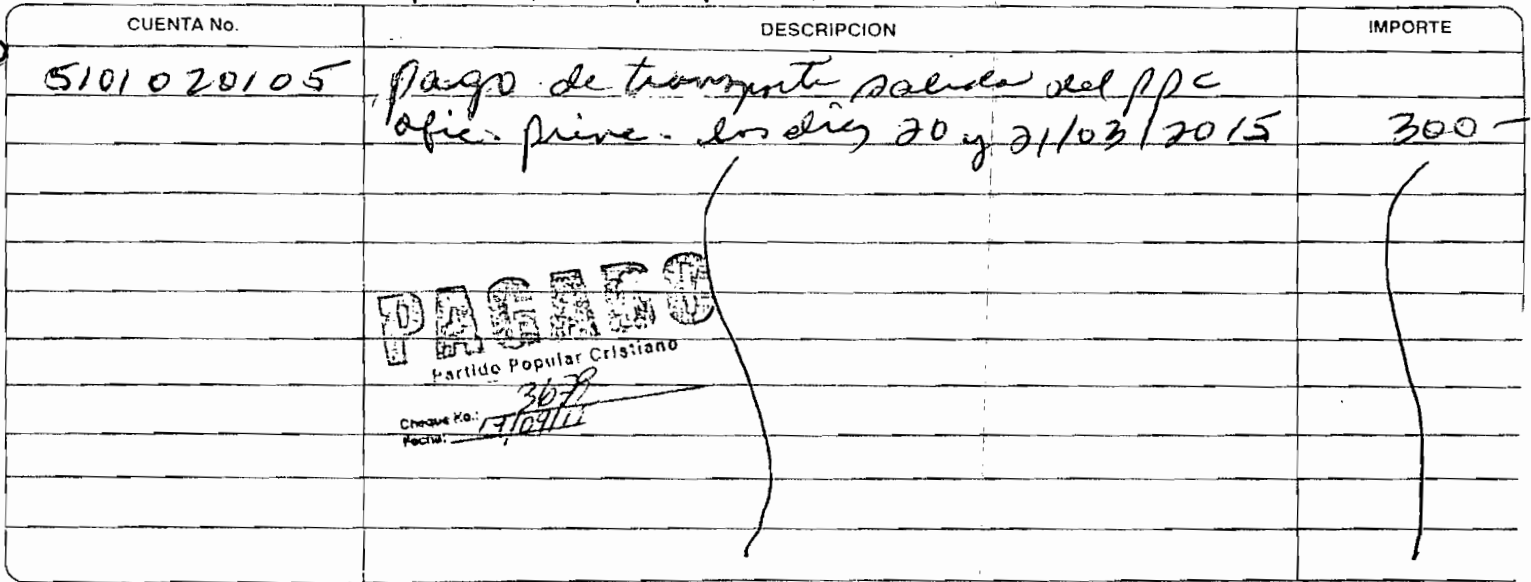 CUENTA No. DESCRIPCION IMPORTE
5101020105 pago de transporte salida del ppc
ofic. los dias 20 y 21/03/2015 300-
PAGADO
Partido Popular Cristiano
Cheque No.: 3679
Fecha: 17/09/11